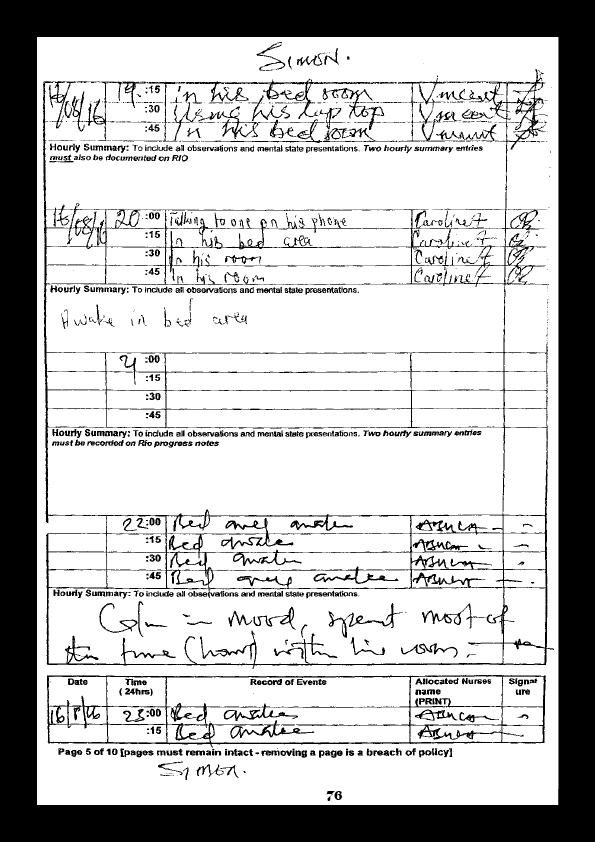 SIMON.
16/08/16 19 :15 In his bed room Vincent
:30 Using his lap top Vincent
:45 In his bed room Vincent
Hourly Summary: To include all observations and mental state presentations. Two hourly summary entries
must also be documented on RIO
16/08/16 20 :00 Talking to one on his phone Caroline A
:15 In his bed area Caroline A
:30 In his room Caroline A
:45 In his room Caroline A
Hourly Summary: To include all observations and mental state presentations.
Awake in bed area
21 :00
:15
:30
:45
Hourly Summary: To include all observations and mental state presentations. Two hourly summary entries
must be recorded on Rio progress notes
22:00 Bed area awake
:15 Bed awake
:30 Bed awake
:45 Bed area awake
Hourly Summary: To include all observations and mental state presentations.
Calm in mood, spent most of
the time (hour) within his room
Date Time Record of Events Allocated Nurses Signat
(24hrs) name ure
(PRINT)
16/8/16 23:00 Bed awake
:15 Bed awake
Page 5 of 10 [pages must remain intact - removing a page is a breach of policy]
SIMON.
76